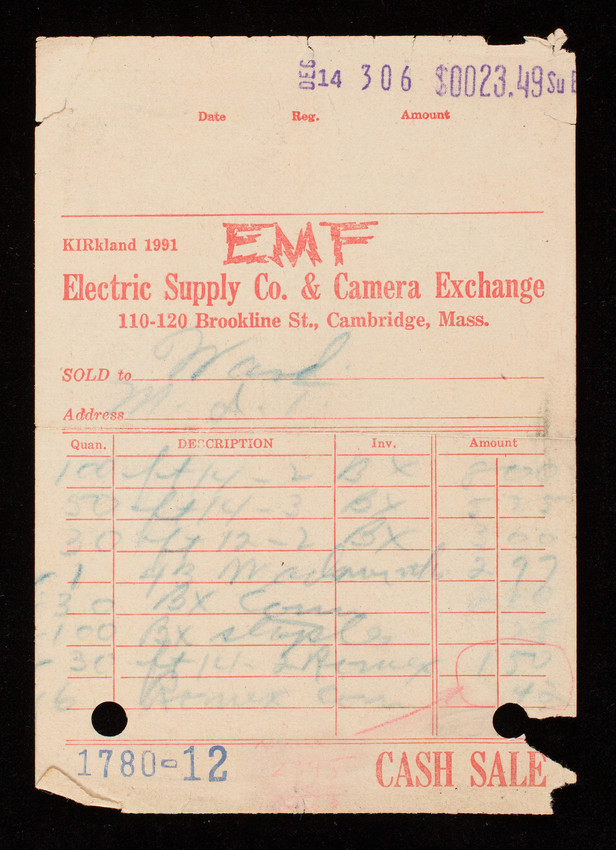 DEC 14 306 $0023.49 Su
Date Reg. Amount
KIRkland 1991 EMF
Electric Supply Co. & Camera Exchange
110-120 Brookline St., Cambridge, Mass.
SOLD to Ward
Address M. d. T.
Quan. DESCRIPTION Inv. Amount
100 ft 14-2 BX
50 ft 14-3 BX 5 25
30 ft 12-2 BX 3 00
1 2 97
30 BX Conn
100 BX staples
30 ft 14-2 Romex 1 50
16 Romex Conn 42
1780-12 CASH SALE